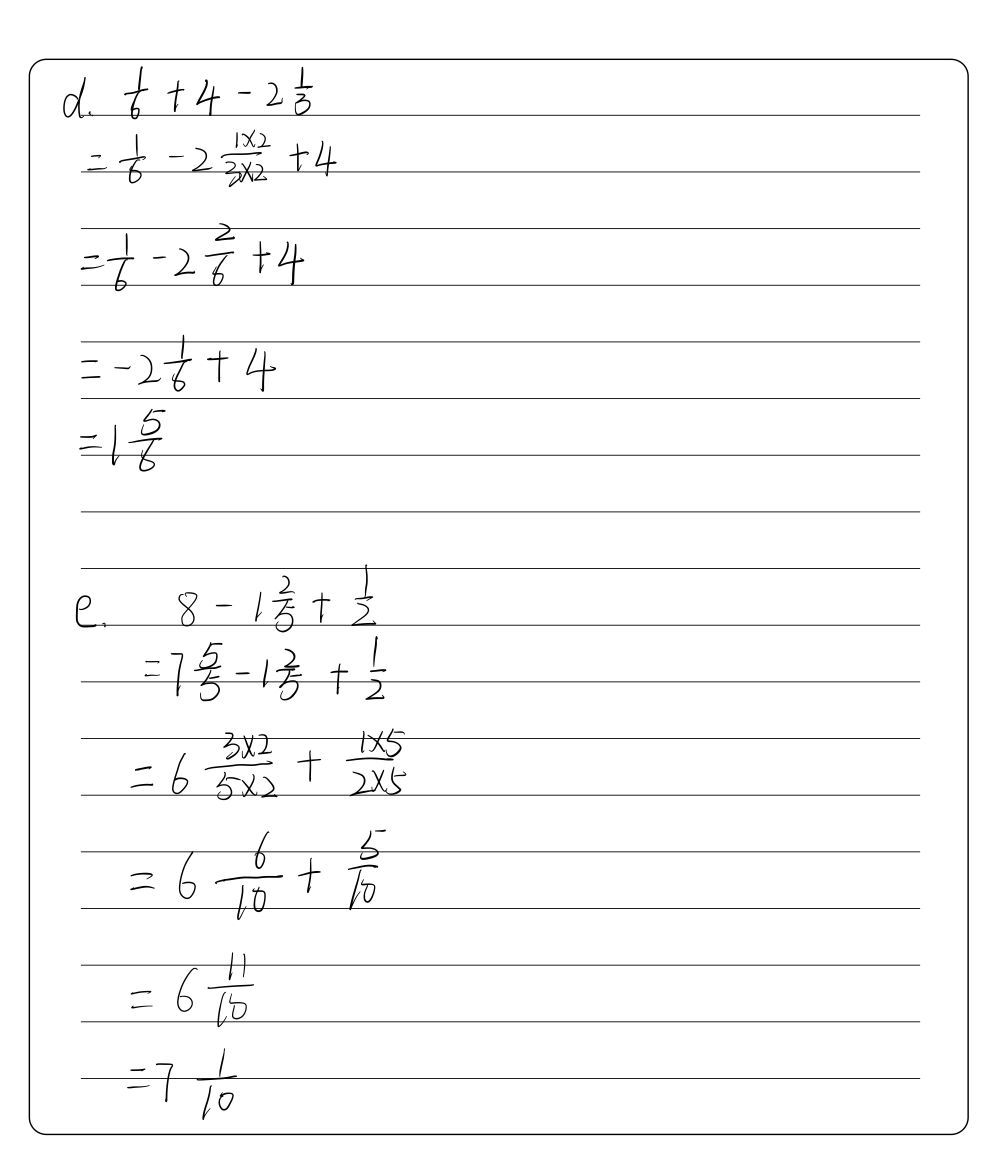 d. 1/6 + 4 - 2 1/3
= 1/6 - 2 1×2/3×2 + 4
= 1/6 - 2 2/6 + 4
= -2 1/6 + 4
= 1 5/6
e. 8 - 1 2/5 + 1/2
= 7 5/5 - 1 2/5 + 1/2
= 6 3×2/5×2 + 1×5/2×5
= 6 6/10 + 5/10
= 6 11/10
= 7 1/10